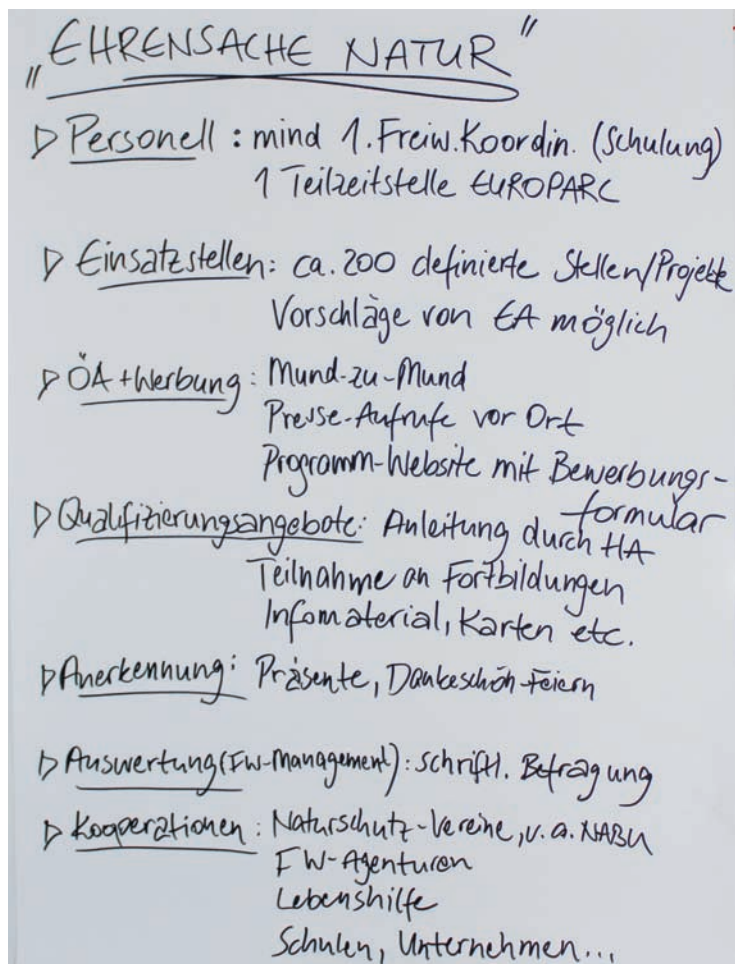 „EHRENSACHE NATUR"
▷ Personell: mind 1. Freiw. Koordin. (Schulung)
1 Teilzeitstelle EUROPARC
▷ Einsatzstellen: ca. 200 definierte Stellen/Projekte
Vorschläge von EA möglich
▷ ÖA + Werbung: Mund-zu-Mund
Presse-Aufrufe vor Ort
Programm-Website mit Bewerbungs-
formular
▷ Qualifizierungsangebote: Anleitung durch HA
Teilnahme an Fortbildungen
Infomaterial, Karten etc.
▷ Anerkennung: Präsente, Dankeschön-Feiern
▷ Auswertung (FW-Management): schriftl. Befragung
▷ Kooperationen: Naturschutz-Vereine, v.a. NABU
FW-Agenturen
Lebenshilfe
Schulen, Unternehmen...